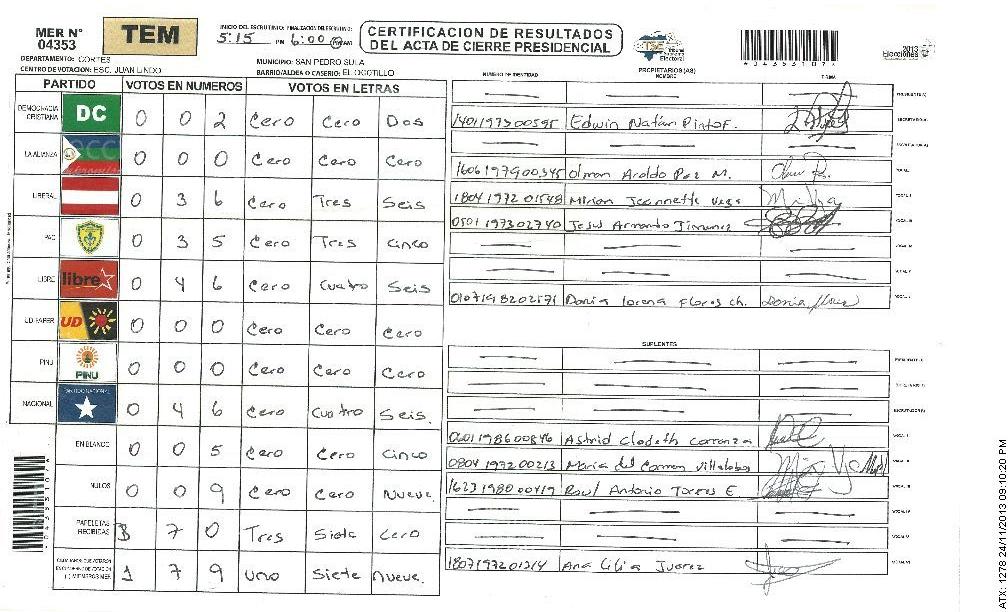 MER N° 04353
TEM
INICIO DEL ESCRUTINIO: FINALIZACION DEL ESCRUTINIO:
5:15 PM 6:00
CERTIFICACION DE RESULTADOS
DEL ACTA DE CIERRE PRESIDENCIAL
TSE Tribunal Supremo Electoral
0 4 3 5 3 1 0 7
2013 Elecciones
DEPARTAMENTO: CORTES
MUNICIPIO: SAN PEDRO SULA
CENTRO DE VOTACION: ESC. JUAN LINDO
BARRIO/ALDEA O CASERIO: EL OCOTILLO
PARTIDO VOTOS EN NUMEROS VOTOS EN LETRAS
DEMOCRACIA CRISTIANA DC 0 0 2 Cero Cero Dos
LA ALIANZA 0 0 0 Cero Cero Cero
LIBERAL 0 3 6 Cero Tres Seis
PAC 0 3 5 Cero Tres cinco
LIBRE libre 0 4 6 Cero cuatro Seis
UD-FAPER UD 0 0 0 Cero Cero Cero
PINU PINU 0 0 0 Cero Cero Cero
NACIONAL 0 4 6 Cero Cuatro Seis
EN BLANCO 0 0 5 Cero Cero Cinco
NULOS 0 0 9 Cero Cero Nueve
PAPELETAS RECIBIDAS 3 7 0 Tres Siete Cero
1 7 9 Uno Siete nueve
NUMERO DE IDENTIDAD PROPIETARIOS (AS) NOMBRE FIRMA
1401197300595 Edwin Natán Pinto F.
1606197900345 Olman Aroldo Paz M.
1804197201548 Miriam Jeannette Vega
0501197302740 Jesus Armando Jimenez
0107198202171 Dania lorena Flores ch.
SUPLENTES
0601198600846 Astrid Clodeth Carranza
0804197200213 Maria del Carmen Villalobos
1623198000419 Raul Antonio Torres E
1807197201214 Ana Lilia Juarez
ATX: 1278 24/11/2013 09:10:20 PM